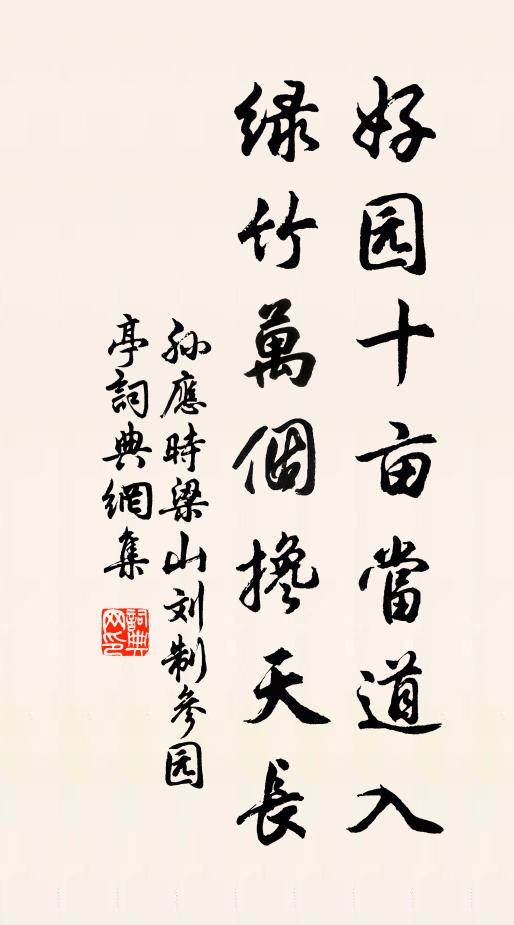 好园十亩當道入
绿竹萬個搀天長
孙應時梁山刘制參园
亭詞典網集
詞典
网印